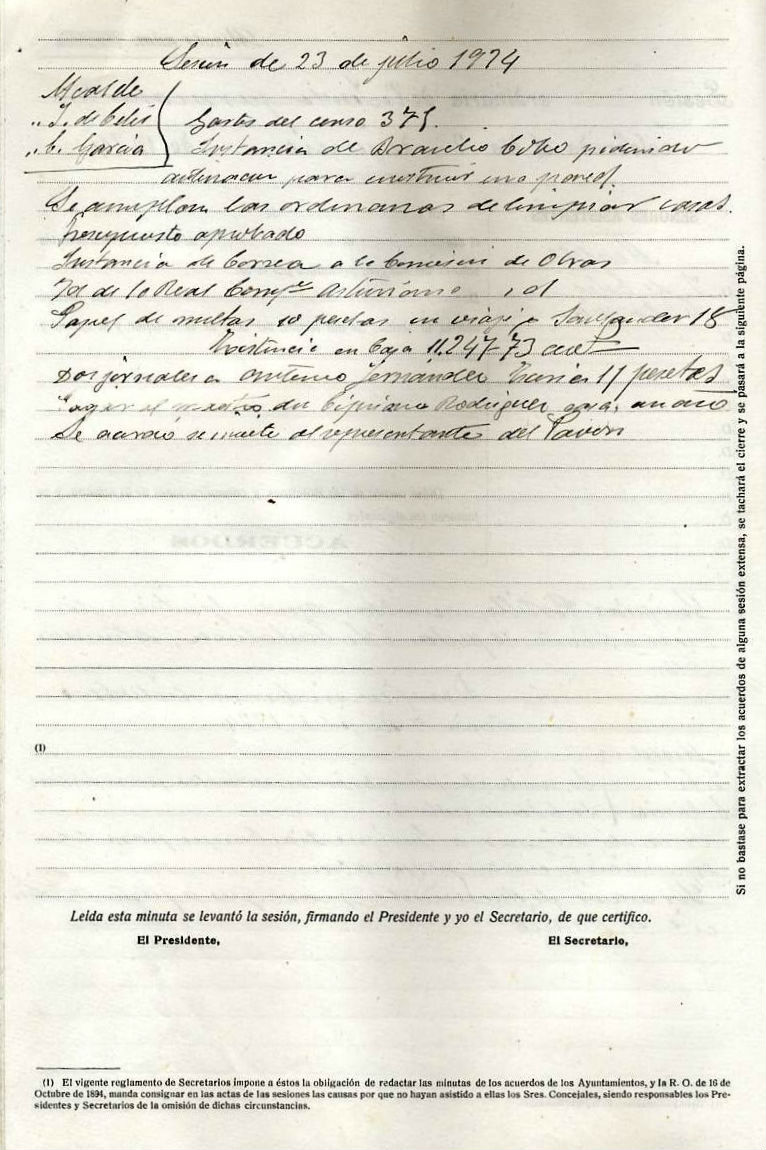 Sesión de 23 de julio 1924
Alcalde
„ J. de Celis
„ C. García
Gastos del censo 375.
Instancia de Braulio Cobo pidiendo
para construir una pared
Se amplian las ordenanzas de limpiar casas.
Presupuesto aprobado
Instancia de Correa a la Comisión de Obras
Id de la Real Compª Asturiana id
Papel de multas 10 pesetas un viaje a Santander 18
Existencia en Caja 11.247-73
Dos jornales a Antonio Fernández 11 pesetas
Pagar al maestro Cipriano Rodríguez casa, un año
Se acordó al representante del
(1)
Leida esta minuta se levantó la sesión, firmando el Presidente y yo el Secretario, de que certifico.
El Presidente,
El Secretario,
Si no bastase para extractar los acuerdos de alguna sesión extensa, se tachará el cierre y se pasará a la siguiente página.
(1) El vigente reglamento de Secretarios impone a éstos la obligación de redactar las minutas de los acuerdos de los Ayuntamientos, y la R. O. de 16 de
Octubre de 1894, manda consignar en las actas de las sesiones las causas por que no hayan asistido a ellas los Sres. Concejales, siendo responsables los Pre-
sidentes y Secretarios de la omisión de dichas circunstancias.